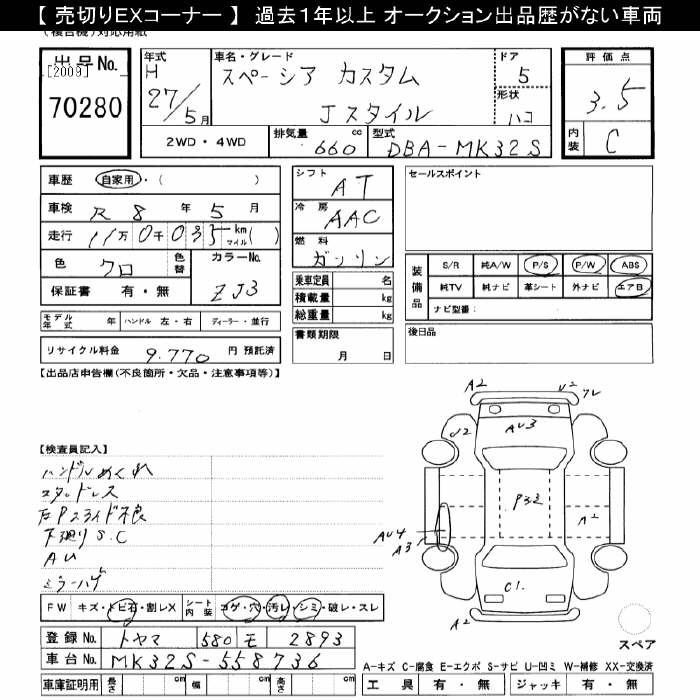 【 売切りEXコーナー 】 過去1年以上 オークション出品歴がない車両
(複合機)対応用紙
出品No.
[2009]
70280
年式
H
27/5月
車名・グレード
スペーシア カスタム
Jスタイル
ドア
5
形状
ハコ
評価点
3.5
内装
C
2WD・4WD
排気量
660 cc
型式
DBA-MK32S
車歴 自家用・( )
車検 R 8 年 5 月
走行 11万 0千 035 km マイル ( )
色 クロ 色替
カラーNo.
ZJ3
保証書 有・無
シフト
AT
冷房
AAC
燃料
ガソリン
セールスポイント
装備品
S/R 純A/W P/S P/W ABS
純TV 純ナビ 革シート 外ナビ エアB
ナビ型番:
乗車定員 名
積載量 kg
総重量 kg
モデル年式 年 ハンドル 左・右 ディーラー・並行
リサイクル料金 9.770 円 預託済
書類期限
月 日
後日品
【出品店申告欄(不良箇所・欠品・注意事項等)】
A2 U2 フレ
U2 AU3
P33
A2
AU4
A3
C1.
A2
【検査員記入】
ハンドルめくれ
スタッドレス
左Pスライド不良
下廻りS.C
AU
ミラーハゲ
FW キズ・トビ石・割レX シート内装 コゲ・穴・汚レ・シミ・破レ・スレ
登録No. トヤマ 580 モ 2893
車台No. MK32S-558736
車庫証明用 長さ cm 幅 cm 高さ cm
スペア
A-キズ C-腐食 E-エクボ S-サビ U-凹ミ W-補修 XX-交換済
工具 有・無 ジャッキ 有・無